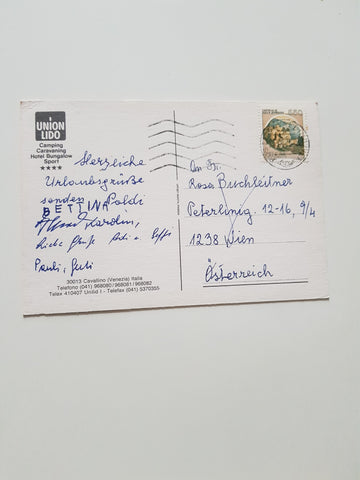 UNION
LIDO
Camping
Caravaning
Hotel Bungalow
Sport
Herzliche
Urlaubsgrüße
senden Poldi
BETTINA
Karolin,
liebe Grüße
Pauli, Geli
30013 Cavallino (Venezia) Italia
Telefono (041) 968080/968081/968082
Telex 410407 Unilid I - Telefax (041) 5370355
550
An Fr.
Rosa Buchleitner
Peterlinig. 12-16, 9/4
1238 Wien
Österreich